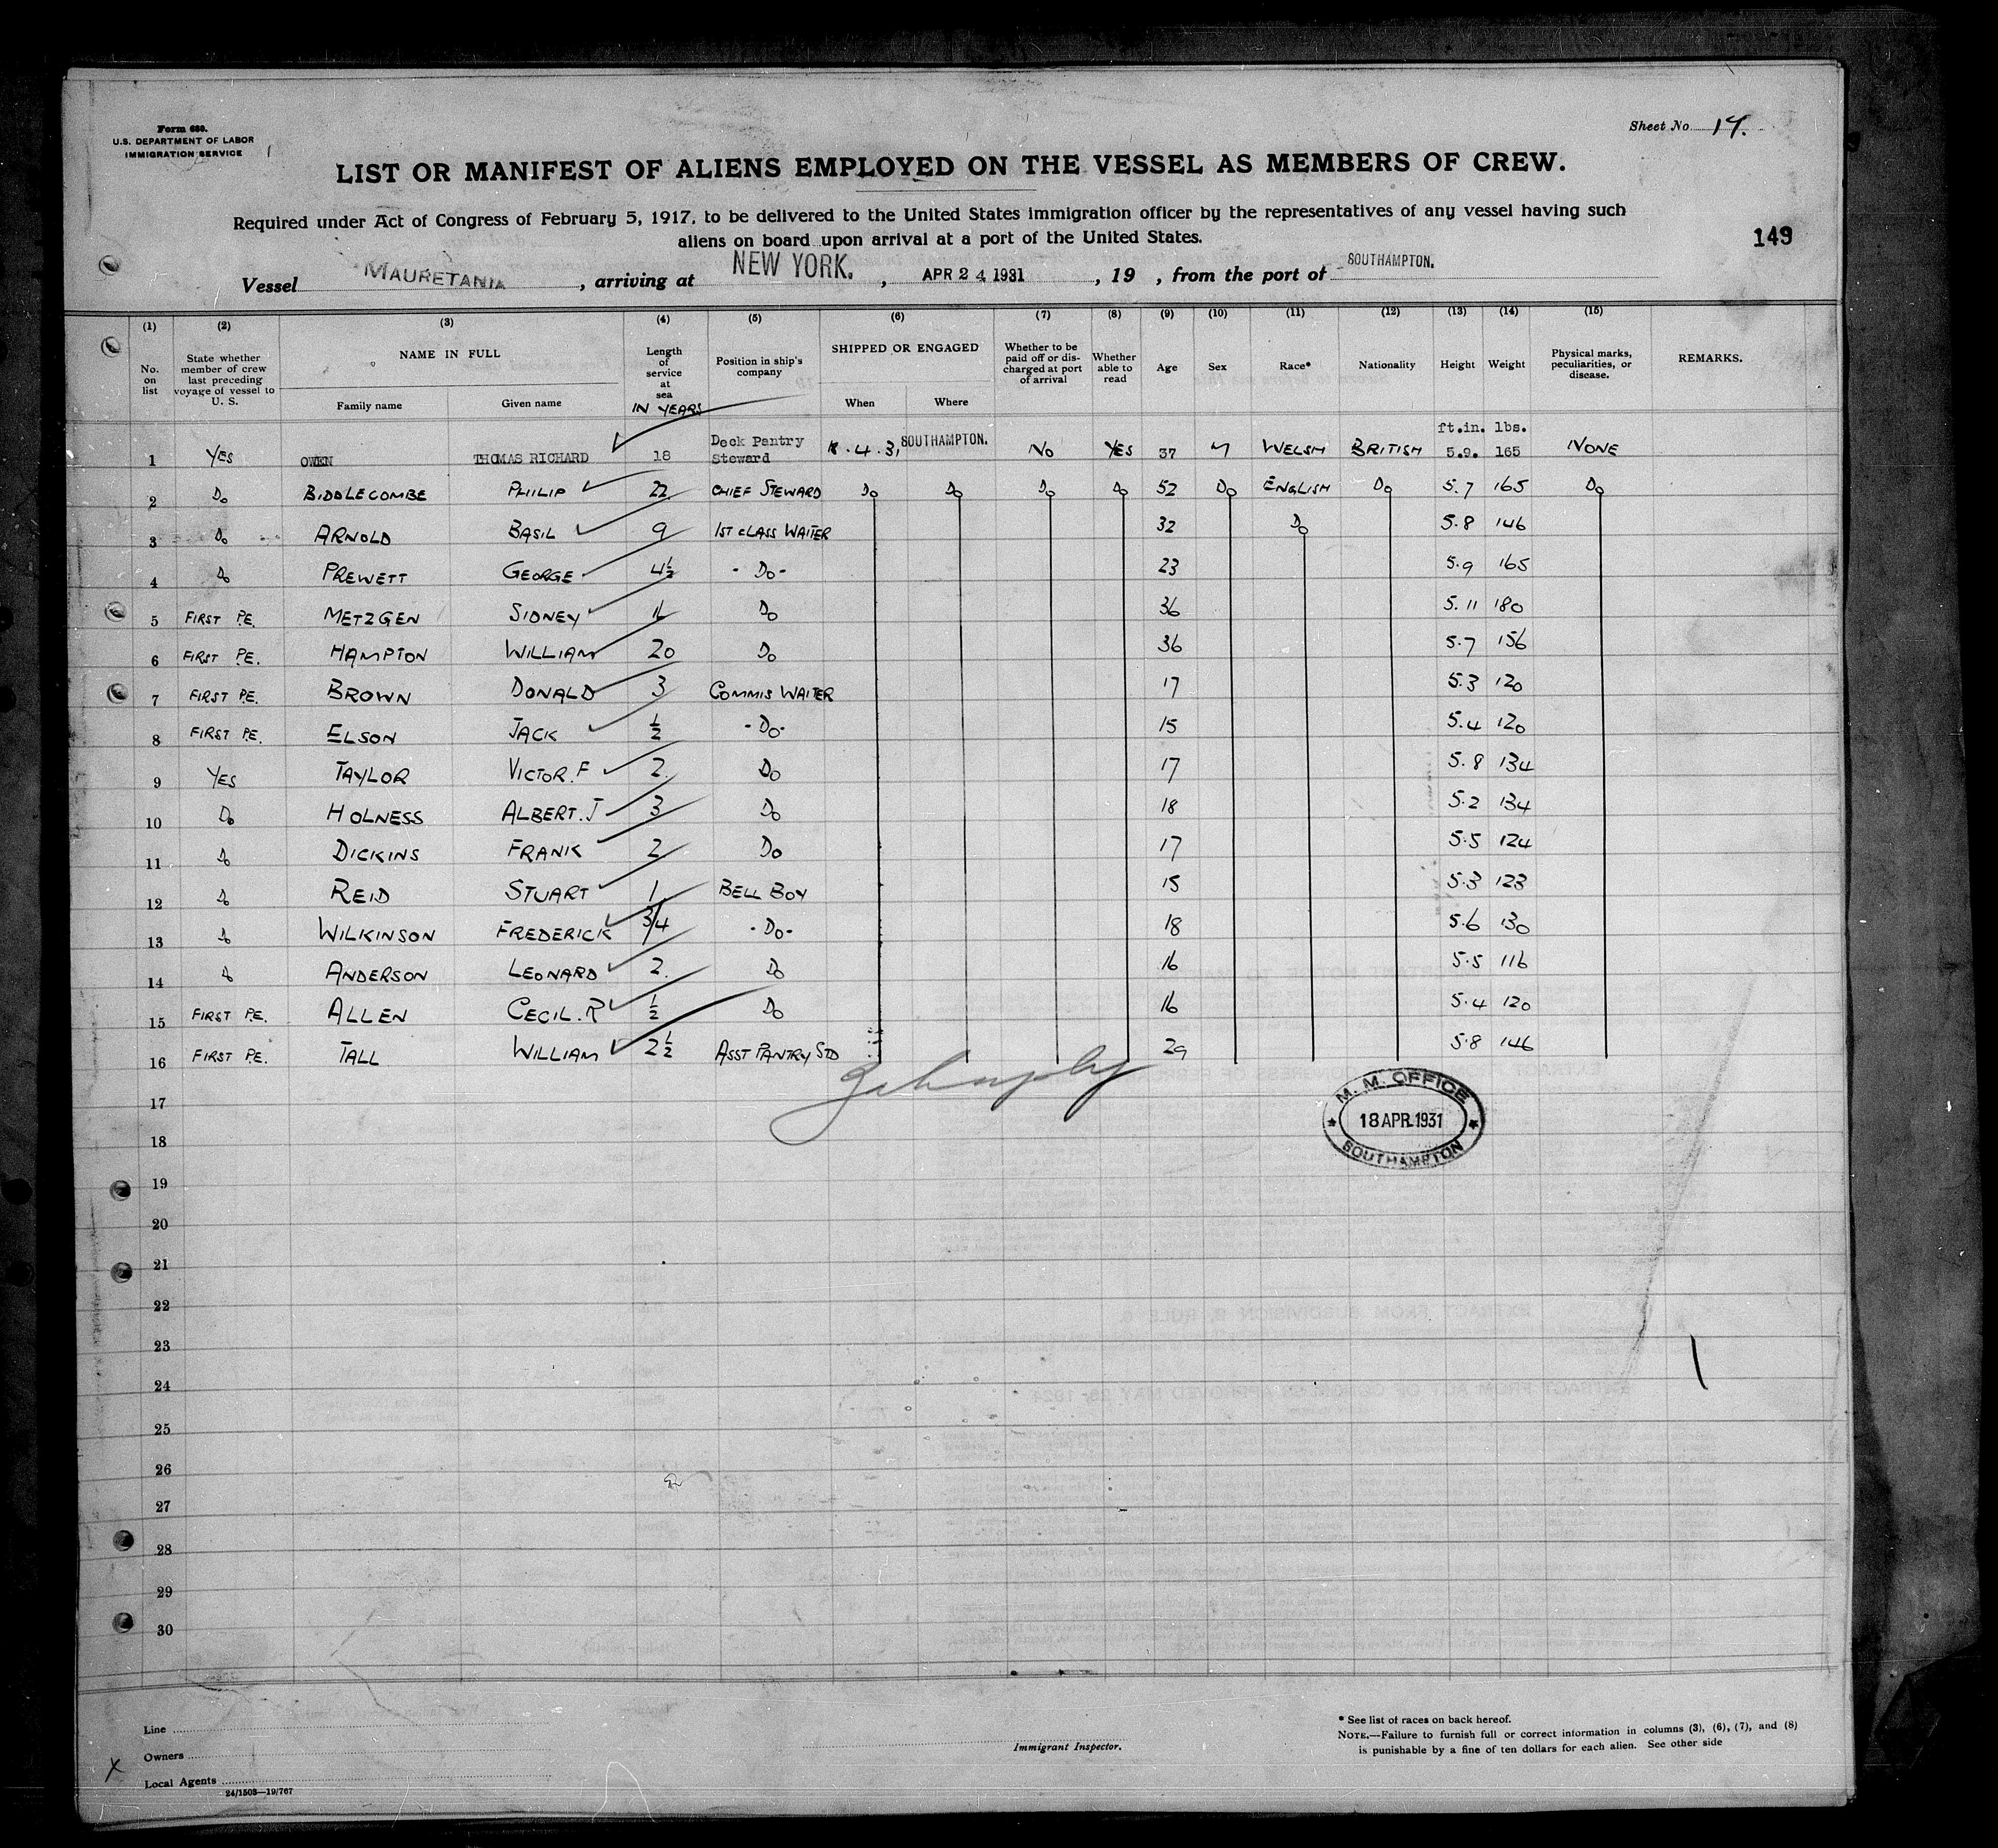 Form 680.
U.S. DEPARTMENT OF LABOR
IMMIGRATION SERVICE
Sheet No. 17.
LIST OR MANIFEST OF ALIENS EMPLOYED ON THE VESSEL AS MEMBERS OF CREW.
Required under Act of Congress of February 5, 1917, to be delivered to the United States immigration officer by the representatives of any vessel having such
aliens on board upon arrival at a port of the United States.
149
Vessel MAURETANIA, arriving at NEW YORK., APR 24 1931, 19 , from the port of SOUTHAMPTON.
(1) (2) (3) (4) (5) (6) (7) (8) (9) (10) (11) (12) (13) (14) (15)
No. on list State whether member of crew last preceding voyage of vessel to U. S. NAME IN FULL Family name Given name Length of service at sea IN YEARS Position in ship's company SHIPPED OR ENGAGED When Where Whether to be paid off or discharged at port of arrival Whether able to read Age Sex Race* Nationality Height Weight Physical marks, peculiarities, or disease. REMARKS.
ft.in. lbs.
1 YES OWEN THOMAS RICHARD 18 Deck Pantry Steward 18.4.31 SOUTHAMPTON. NO YES 37 M WELSH BRITISH 5.9. 165 NONE
2 Do BIDDLECOMBE PHILIP 22 CHIEF STEWARD Do Do Do Do 52 Do ENGLISH Do 5.7 165 Do
3 Do ARNOLD BASIL 9 1ST CLASS WAITER 32 Do 5.8 146
4 Do PREWETT GEORGE 4½ -Do- 23 5.9 165
5 FIRST P.E. METZGEN SIDNEY Do 36 5.11 180
6 FIRST P.E. HAMPTON WILLIAM 20 Do 36 5.7 156
7 FIRST P.E. BROWN DONALD 3 COMMIS WAITER 17 5.3 120
8 FIRST P.E. ELSON JACK ½ -Do- 15 5.4 120
9 YES TAYLOR VICTOR.F 2. Do 17 5.8 134
10 Do HOLNESS ALBERT.J 3 Do 18 5.2 134
11 Do DICKINS FRANK 2 Do 17 5.5 124
12 Do REID STUART 1 BELL BOY 15 5.3 123
13 Do WILKINSON FREDERICK 3/4 -Do- 18 5.6 130
14 Do ANDERSON LEONARD 2. Do 16 5.5 116
15 FIRST P.E. ALLEN CECIL.R ½ Do 16 5.4 120
16 FIRST P.E. TALL WILLIAM 2½ ASST PANTRY STD 29 5.8 146
17
M. M. OFFICE
18 APR 1931
SOUTHAMPTON
18
19
20
21
22
23
24
25
26
27
28
29
30
Line
Owners
Local Agents
24/1503—19/767
Immigrant Inspector.
* See list of races on back hereof.
NOTE.—Failure to furnish full or correct information in columns (3), (6), (7), and (8)
is punishable by a fine of ten dollars for each alien. See other side